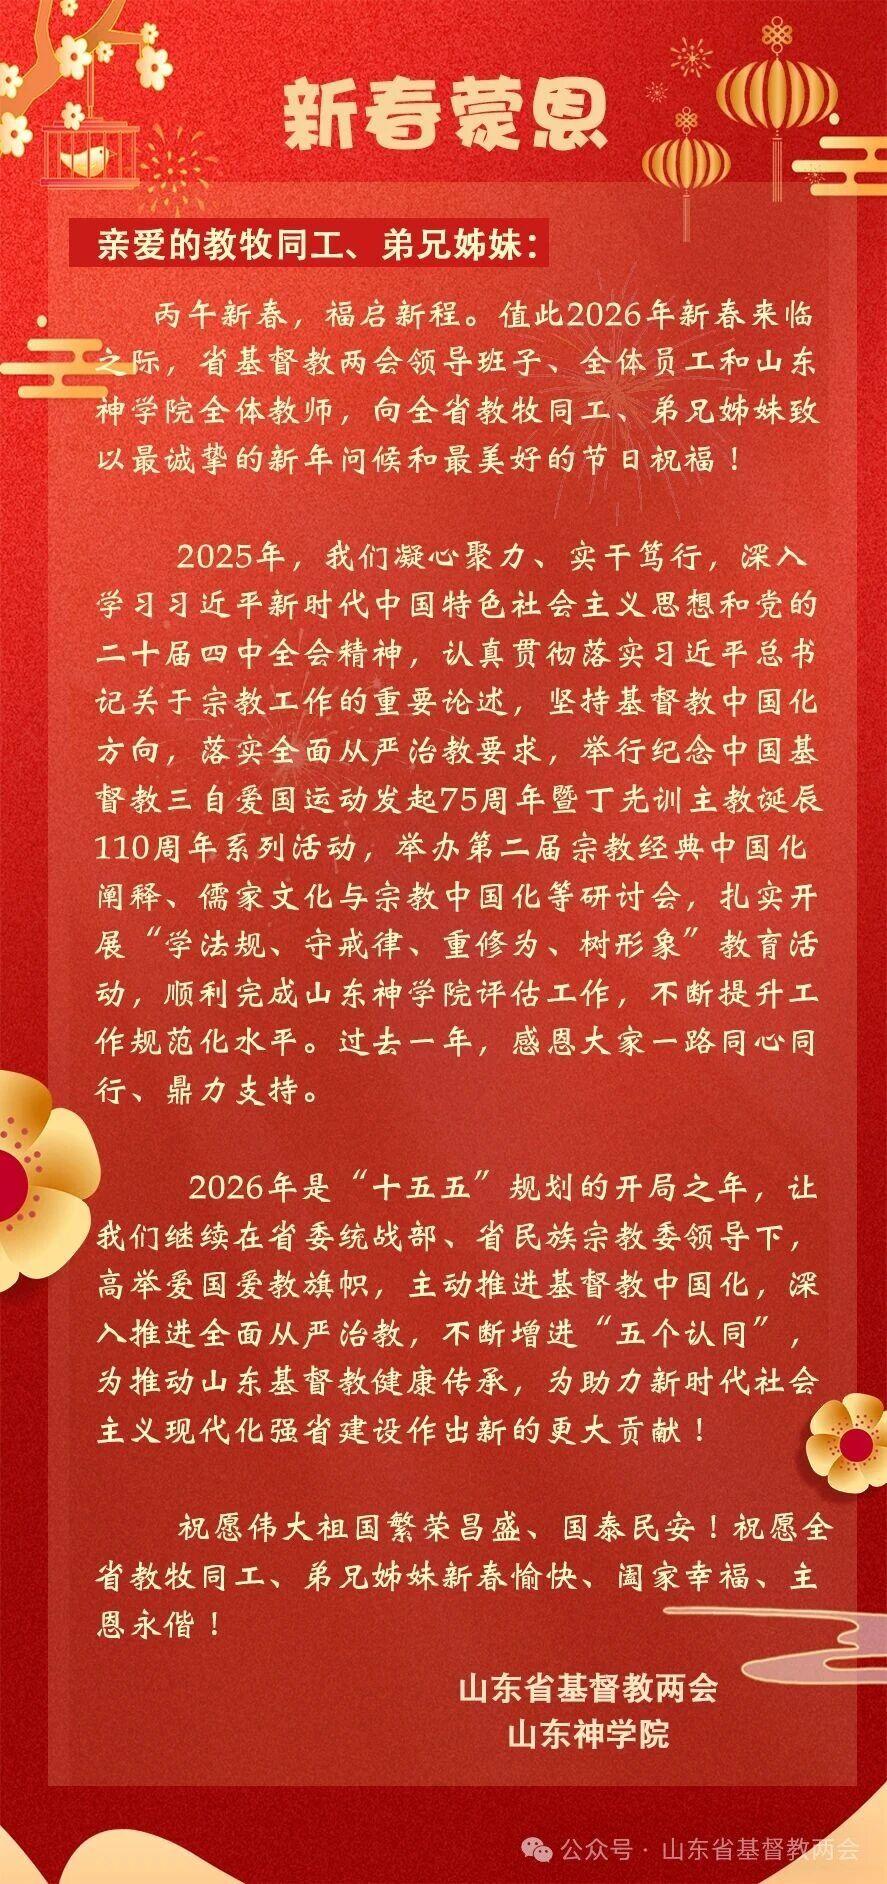 新春蒙恩
亲爱的教牧同工、弟兄姊妹：
丙午新春，福启新程。值此2026年新春来临
之际，省基督教两会领导班子、全体员工和山东
神学院全体教师，向全省教牧同工、弟兄姊妹致
以最诚挚的新年问候和最美好的节日祝福！
2025年，我们凝心聚力、实干笃行，深入
学习习近平新时代中国特色社会主义思想和党的
二十届四中全会精神，认真贯彻落实习近平总书
记关于宗教工作的重要论述，坚持基督教中国化
方向，落实全面从严治教要求，举行纪念中国基
督教三自爱国运动发起75周年暨丁光训主教诞辰
110周年系列活动，举办第二届宗教经典中国化
阐释、儒家文化与宗教中国化等研讨会，扎实开
展“学法规、守戒律、重修为、树形象”教育活
动，顺利完成山东神学院评估工作，不断提升工
作规范化水平。过去一年，感恩大家一路同心同
行、鼎力支持。
2026年是“十五五”规划的开局之年，让
我们继续在省委统战部、省民族宗教委领导下，
高举爱国爱教旗帜，主动推进基督教中国化，深
入推进全面从严治教，不断增进“五个认同”，
为推动山东基督教健康传承，为助力新时代社会
主义现代化强省建设作出新的更大贡献！
祝愿伟大祖国繁荣昌盛、国泰民安！祝愿全
省教牧同工、弟兄姊妹新春愉快、阖家幸福、主
恩永偕！
山东省基督教两会
山东神学院
公众号·山东省基督教两会